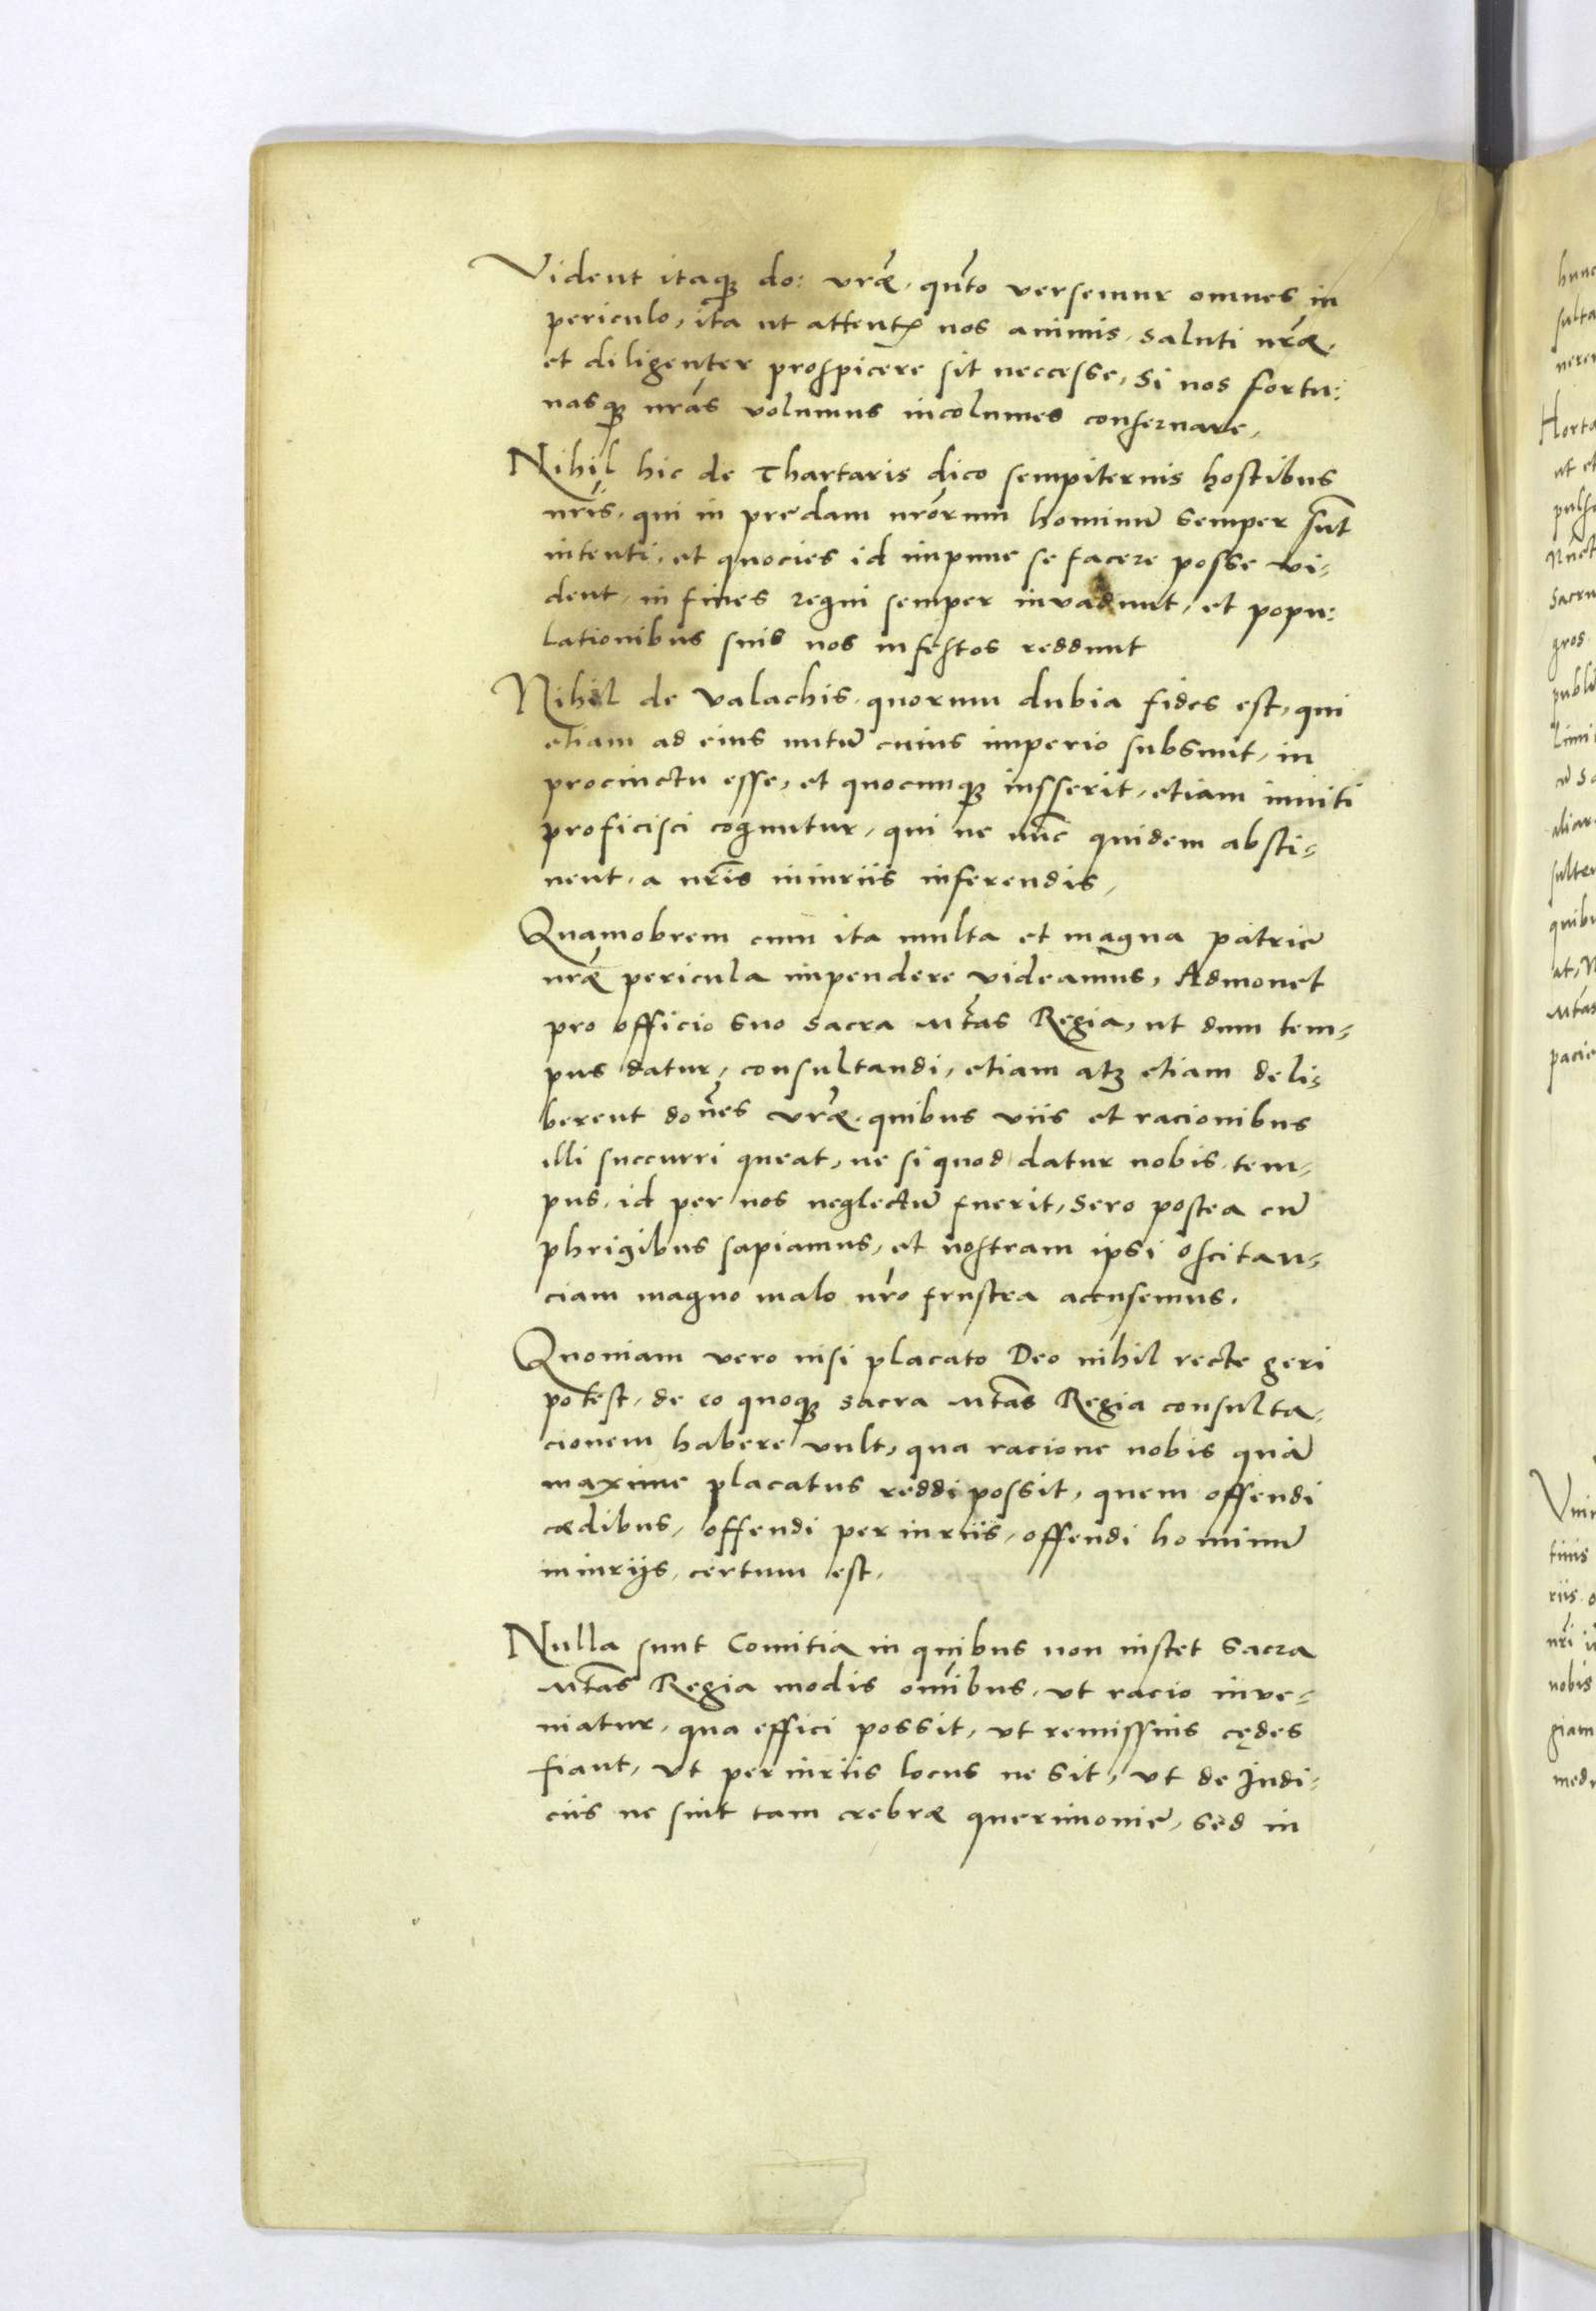 Vident itaqꝫ do: vr̃æ, qũto versemur omnes in
periculo, ita ut attentꝭ nos animis, saluti nr̃æ,
et diligenter prospicere sit neccesse, si nos fortu:
nasqꝫ nr̃as volumus incolumes conseruare,
Nihil hic de Thartaris dico sempiternis hostibus
nr̃is, qui in predam nr̃orum hominũ semper sũt
intenti, et quocies id impune se facere posse vi-
dent, in fines regni semper invadunt, et popu:
lationibus suis nos infestos reddunt
Nihil de Valachis, quorum dubia fides est, qui
etiam ad eius nutũ cuius imperio subsunt, in
procinctu esse, et quocunqꝫ iusserit, etiam inuiti
proficisci coguntur, qui ne nũc quidem absti-
nent, a nr̃is iniuriis inferendis,
Quamobrem cum ita multa et magna patrie
nr̃æ pericula impendere videamus, Admonet
pro officio suo sacra Mt̃as Regia, ut dum tem-
pus datur, consultandi, etiam atqꝫ etiam deli-
berent dоñes vr̃æ, quibus viis et racionibus
illi succurri queat, ne si quod datur nobis tem-
pus, id per nos neglectũ fuerit, sero postea cũ
phrigibus sapiamus, et nostram ipsi oscitan-
ciam magno malo nr̃o frustra accusemus.
Quoniam vero nisi placato Deo nihil recte geri
potest, de eo quoqꝫ sacra Mt̃as Regia consulta-
cionem habere vult, qua racione nobis quã
maxime placatus reddi possit, quem offendi
cædibus, offendi periuriis, offendi hominũ
iniurijs, certum est,
Nulla sunt Comitia in quibus non instet Sacra
Mt̃as Regia modis om̃ibus, ut racio inve-
niatur, qua effici possit, ut remissius cędes
fiant, ut periuriis locus ne sit, ut de Judi-
ciis ne sint tam crebræ querimonie, sed in